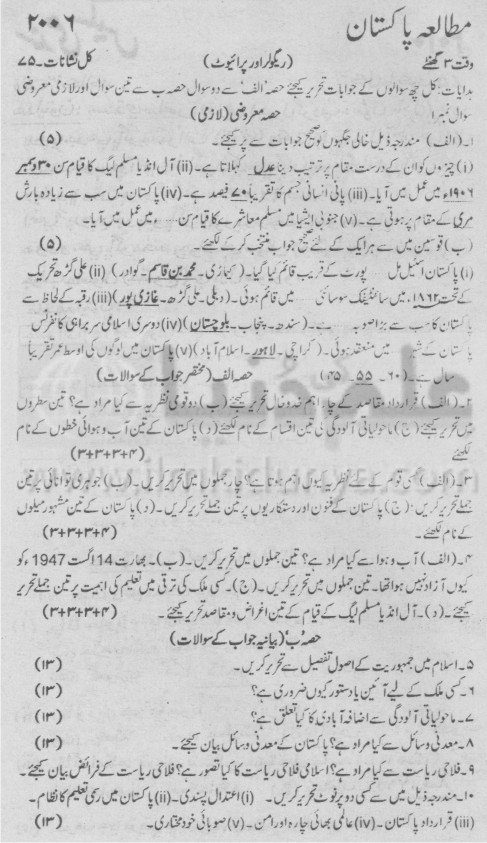 مطالعہ پاکستان ۲۰۰۶
وقت ۳ گھنٹے (ریگولر اور پرائیوٹ) کل نشانات۔۷۵
ہدایات: کل چھ سوالوں کے جوابات تحریر کیجئے حصہ 'الف' سے دو سوال حصہ ب سے تین سوال اور لازمی معروضی
سوال نمبر ۱
حصہ معروضی (لازمی)
۱۔ (الف) مندرجہ ذیل خالی جگہوں کو صحیح جوابات سے پر کیجئے۔ (۵)
(i) چیزوں کو ان کے درست مقام پر ترتیب دینا عدل کہلاتا ہے۔ (ii) آل انڈیا مسلم لیگ کا قیام سن ۳۰ دسمبر
۱۹۰۶ء میں عمل میں آیا۔ (iii) پانی انسانی جسم کا تقریباً ۷۰ فیصد ہے۔ (iv) پاکستان میں سب سے زیادہ بارش
مری کے مقام پر ہوتی ہے۔ (v) جنوبی ایشیا میں مسلم معاشرے کا قیام سن ...... ء میں عمل میں آیا۔
(ب) قوسین میں سے ہر ایک کے لئے صحیح جواب منتخب کر کے لکھئے۔ (۵)
(i) پاکستان اسٹیل مل پورٹ کے قریب قائم کیا گیا۔ (کیماڑی۔ محمد بن قاسم۔ گوادر) (ii) علی گڑھ تحریک
کے تحت ۱۸۶۲ء میں سائنٹیفک سوسائٹی میں قائم ہوئی۔ (دہلی۔ علی گڑھ۔ غازی پور) (iii) رقبہ کے لحاظ سے
پاکستان کا سب سے بڑا صوبہ ہے۔ (سندھ۔ پنجاب۔ بلوچستان) (iv) دوسری اسلامی سربراہی کانفرنس
پاکستان کے شہر میں منعقد ہوئی۔ (کراچی۔ لاہور۔ اسلام آباد) (v) پاکستان میں لوگوں کی اوسط عمر تقریباً
سال ہے۔ (۶۰۔ ۵۵۔ ۴۵)
حصہ الف (مختصر جواب کے سوالات)
۲۔ (الف) قرارداد مقاصد کے چار اہم خدوخال تحریر کیجئے (ب) دو قومی نظریہ سے کیا مراد ہے؟ تین سطروں
میں تحریر کیجئے (ج) ماحولیاتی آلودگی کی تین اقسام کے نام لکھئے (د) پاکستان کے تین آب و ہوائی خطوں کے نام
لکھئے (۳+۳+۳+۴)
۳۔ (الف) کسی قوم کے لئے نظریہ کیوں اہم ہوتا ہے؟ چار جملوں میں تحریر کریں۔ (ب) جوہری توانائی پر تین
جملے تحریر کریں۔ (ج) پاکستان کے فنون اور دستکاریوں پر تین جملے تحریر کریں۔ (د) پاکستان کے تین مشہور میلوں
کے نام لکھئے۔ (۳+۳+۳+۴)
۴۔ (الف) آب و ہوا سے کیا مراد ہے؟ تین جملوں میں تحریر کریں۔ (ب)۔ بھارت 14 اگست 1947ء کو
کیوں آزاد نہیں ہوا تھا۔ تین جملوں میں تحریر کریں۔ (ج)۔ کسی ملک کی ترقی میں تعلیم کی اہمیت پر تین جملے تحریر
کیجئے۔ (د)۔ آل انڈیا مسلم لیگ کے قیام کے تین اغراض و مقاصد تحریر کیجئے۔ (۳+۳+۳+۴)
حصہ 'ب' (بیانیہ جواب کے سوالات)
۵۔ اسلام میں جمہوریت کے اصول تفصیل سے تحریر کریں۔ (۱۳)
۶۔ کسی ملک کے لیے آئین یا دستور کیوں ضروری ہے؟ (۱۳)
۷۔ ماحولیاتی آلودگی سے اضافہ آبادی کا کیا تعلق ہے؟ (۱۳)
۸۔ معدنی وسائل سے کیا مراد ہے؟ پاکستان کے معدنی وسائل بیان کیجئے۔ (۱۳)
۹۔ فلاحی ریاست سے کیا مراد ہے؟ اسلامی فلاحی ریاست کا کیا تصور ہے؟ فلاحی ریاست کے فرائض بیان کیجئے۔
۱۰۔ مندرجہ ذیل میں سے کسی دو پر نوٹ تحریر کریں۔ (i) اعتدال پسندی۔ (ii) پاکستان میں رسمی تعلیم کا نظام۔
(iii) قرارداد پاکستان۔ (iv) عالمی بھائی چارہ اور امن۔ (v) صوبائی خودمختاری۔ (۱۳)